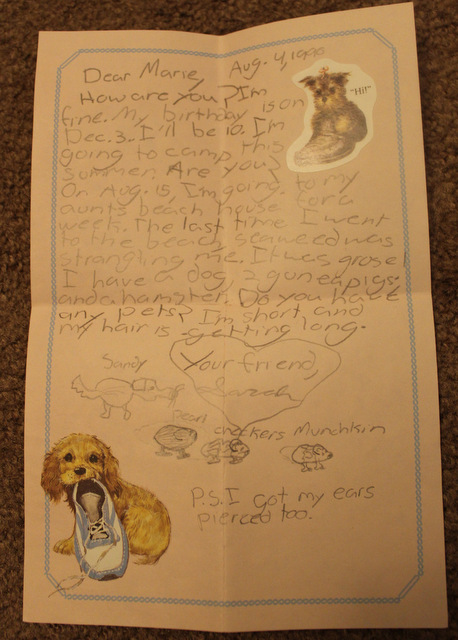 Aug. 4, 1990
Dear Marie,
"Hi!"
How are you? I'm
fine. My birthday is on
Dec. 3. I'll be 10. I'm
going to camp this
summer. Are you?
On Aug. 15, I'm going to my
aunts beach house for a
week. The last time I went
to the beach seaweed was
strangling me. It was grose!
I have a dog, 2 guneapigs
and a hamster. Do you have
any pets? I'm short and
my hair is getting long.
Your friend,
Sarah
Sandy
Pearl
checkers Munchkin
P.S. I got my ears
pierced too.